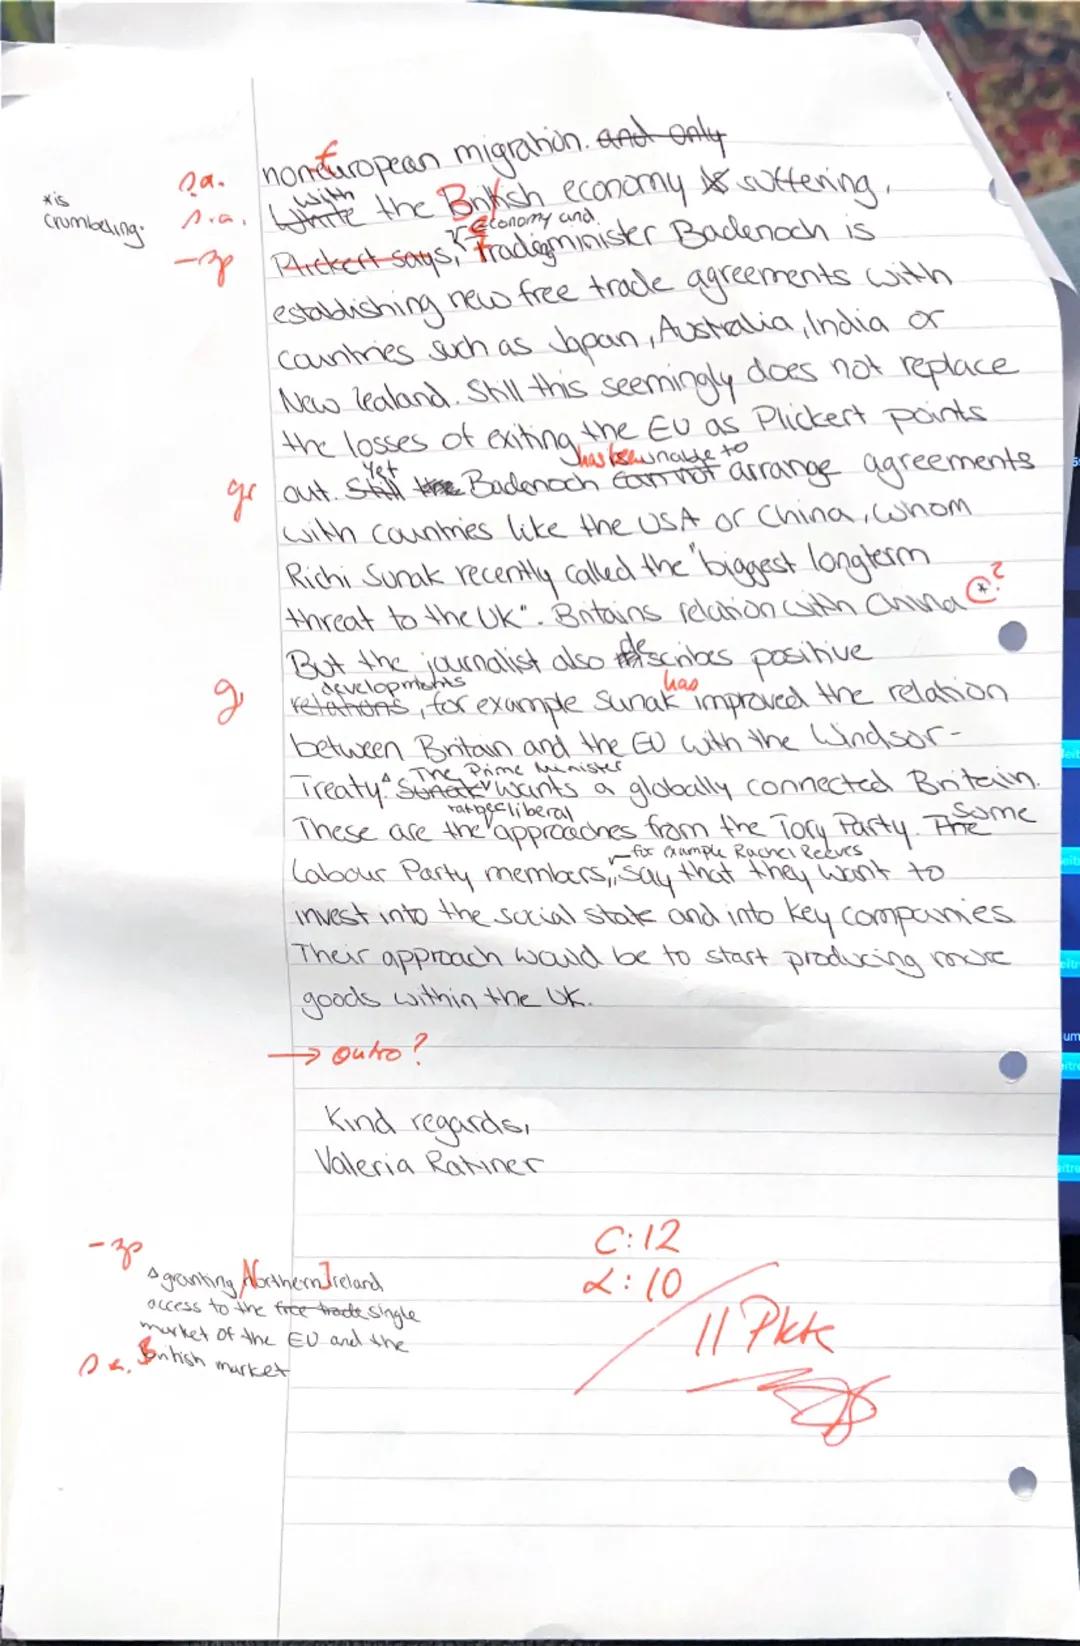 noneuropean migration. and only
s.a.
E
*is
crumbeling.
s.a.
with
While the British economy is suffering,
economy and
-zp
Plickert says, Trademinister Badenoch is
establishing new free trade agreements with
countries such as Japan, Australia, India or
New Zealand. Still this seemingly does not replace
the losses of exiting the EU as Plickert points
has been is unable to
Yet
gr
out. Still the Badenoch can not arrange agreements
with countries like the USA or China, whom
Richi Sunak recently called the "biggest longterm
threat to the UK". Britains relation with China * ?
But the journalist also describes positive
developments
has
g
relations, for example Sunak improved the relation
between Britain and the EU with the Windsor-
The Prime Minister
Treaty. Sunak wants a globally connected Britain.
rather liberal
Some
These are the approaches from the Tory Party. The
for example Rachel Reeves
Labour Party members, say that they want to
invest into the social state and into key companies.
Their approach would be to start producing more
goods within the UK.
→ outro?
Kind regards,
Valeria Ratiner
C: 12
L: 10
11 Pkte
-zp
granting Northern Ireland
access to the free trade single
market of the EU and the
s.a.
British market